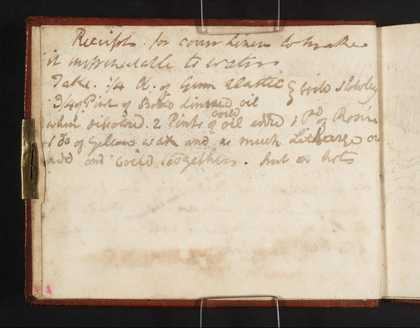 Receipt for coarse linen to make
it impenetrable to water
Take 1/4 lb. of Gum elastic & boil slowly
3/4 of Pint of Boild linseed oil
when disolved. 2 Pints of oil added 1 Pd of Rosin
boild
1 lb of yellow wax and as much Litharge
add and boild together. but on hot